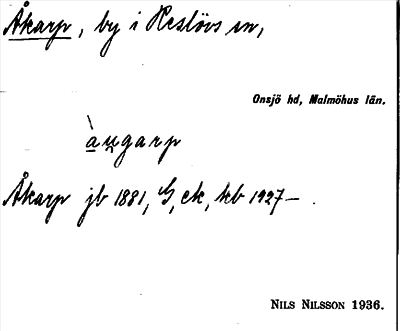 Åkarp, by i Reslövs sn,
Onsjö hd, Malmöhus län.
àu̯garp
Åkarp jb 1881, G, ek, kb 1927–.
NILS NILSSON 1936.